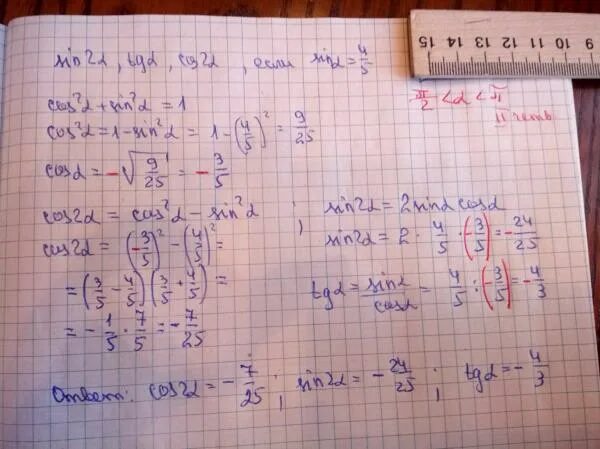 sin2α, tgα, cos2α, если sinα = 4/5
π/2 < α < π
II четь
cos²α + sin²α = 1
cos²α = 1 - sin²α = 1 - (4/5)² = 9/25
cosα = -√(9/25) = -3/5
cos2α = cos²α - sin²α
cos2α = (-3/5)² - (4/5)² =
= (3/5 - 4/5)(3/5 + 4/5) =
= -1/5 · 7/5 = -7/25
; sin2α = 2sinα cosα
sin2α = 2 · 4/5 · (-3/5) = -24/25
tgα = sinα/cosα = 4/5 : (-3/5) = -4/3
Ответ: cos2α = -7/25 ; sin2α = -24/25 ; tgα = -4/3
15 14 13 12 11 10 9